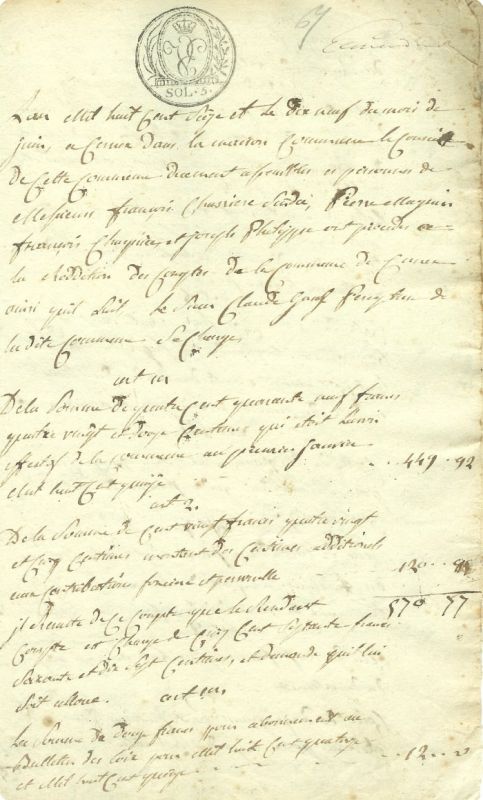 67
SOL. 3.
L'an Mil huit Cent Seize et le dix neuf du mois de
juin, a Cernex dans la maison Commune le Conseil
De Cette Commune duement assemblée en personnes de
Messieurs françois Chassiere Sindic, Pierre
françois et joseph Philippe ont procédé a
la Reddition des Comptes de la Commune de Cernex
ainsi qu'il Suit. le Sieur Claude Percepteur de
la dite Commune Se Charge
art 1er
De la Somme de quatre Cent quarante neuf francs
quatre vingt et douze Centimes qui étoit
effectif de la commune au premier janvier
Mil huit Cent quinze 449 . 92
art 2.
De la Somme de Cent vingt francs quatre vingt
et Cinq Centimes montant des Centimes additionels
aux contributions fonciere et personelle 120 .. 85
il Resulte de Ce Compte que le Rendant 570 77
Compte est Chargé de Cinq Cent Septante francs
Soixante et dix Sept Centimes, et demande qu'il lui
Soit alloué. art 1er.
La Somme de Douze francs pour abonnement au
Bulletin des Loix pour Mil huit Cent quatorze
et Mil huit Cent quinze 12 ..